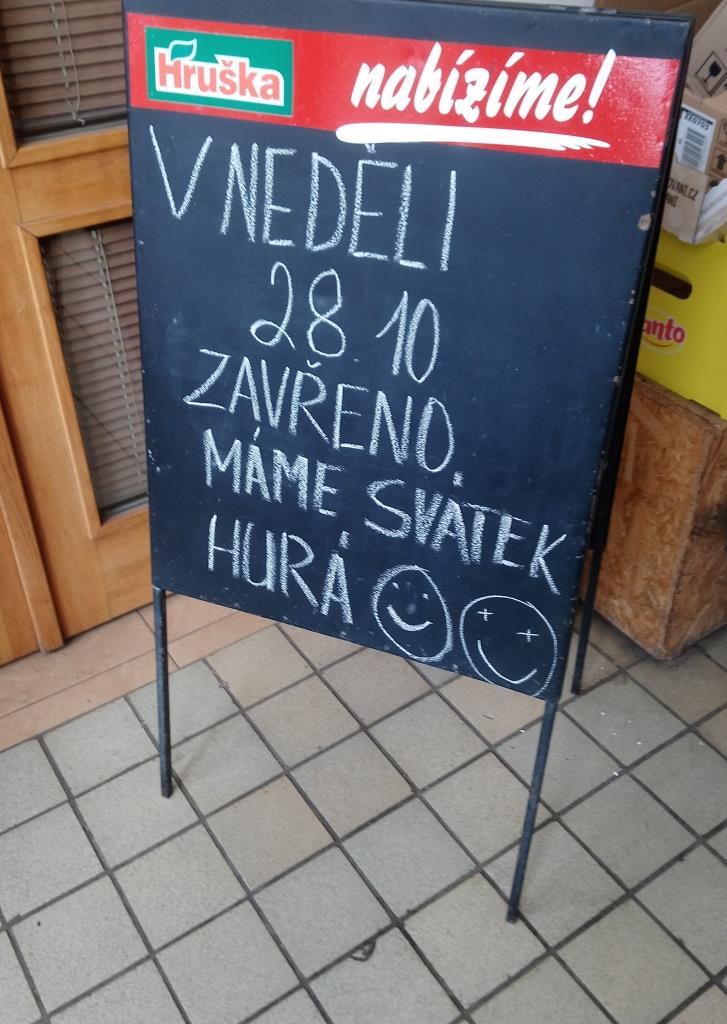 Hruška
nabízíme!
V NEDĚLI
28 10
ZAVŘENO.
MÁME SVÁTEK
HURÁ